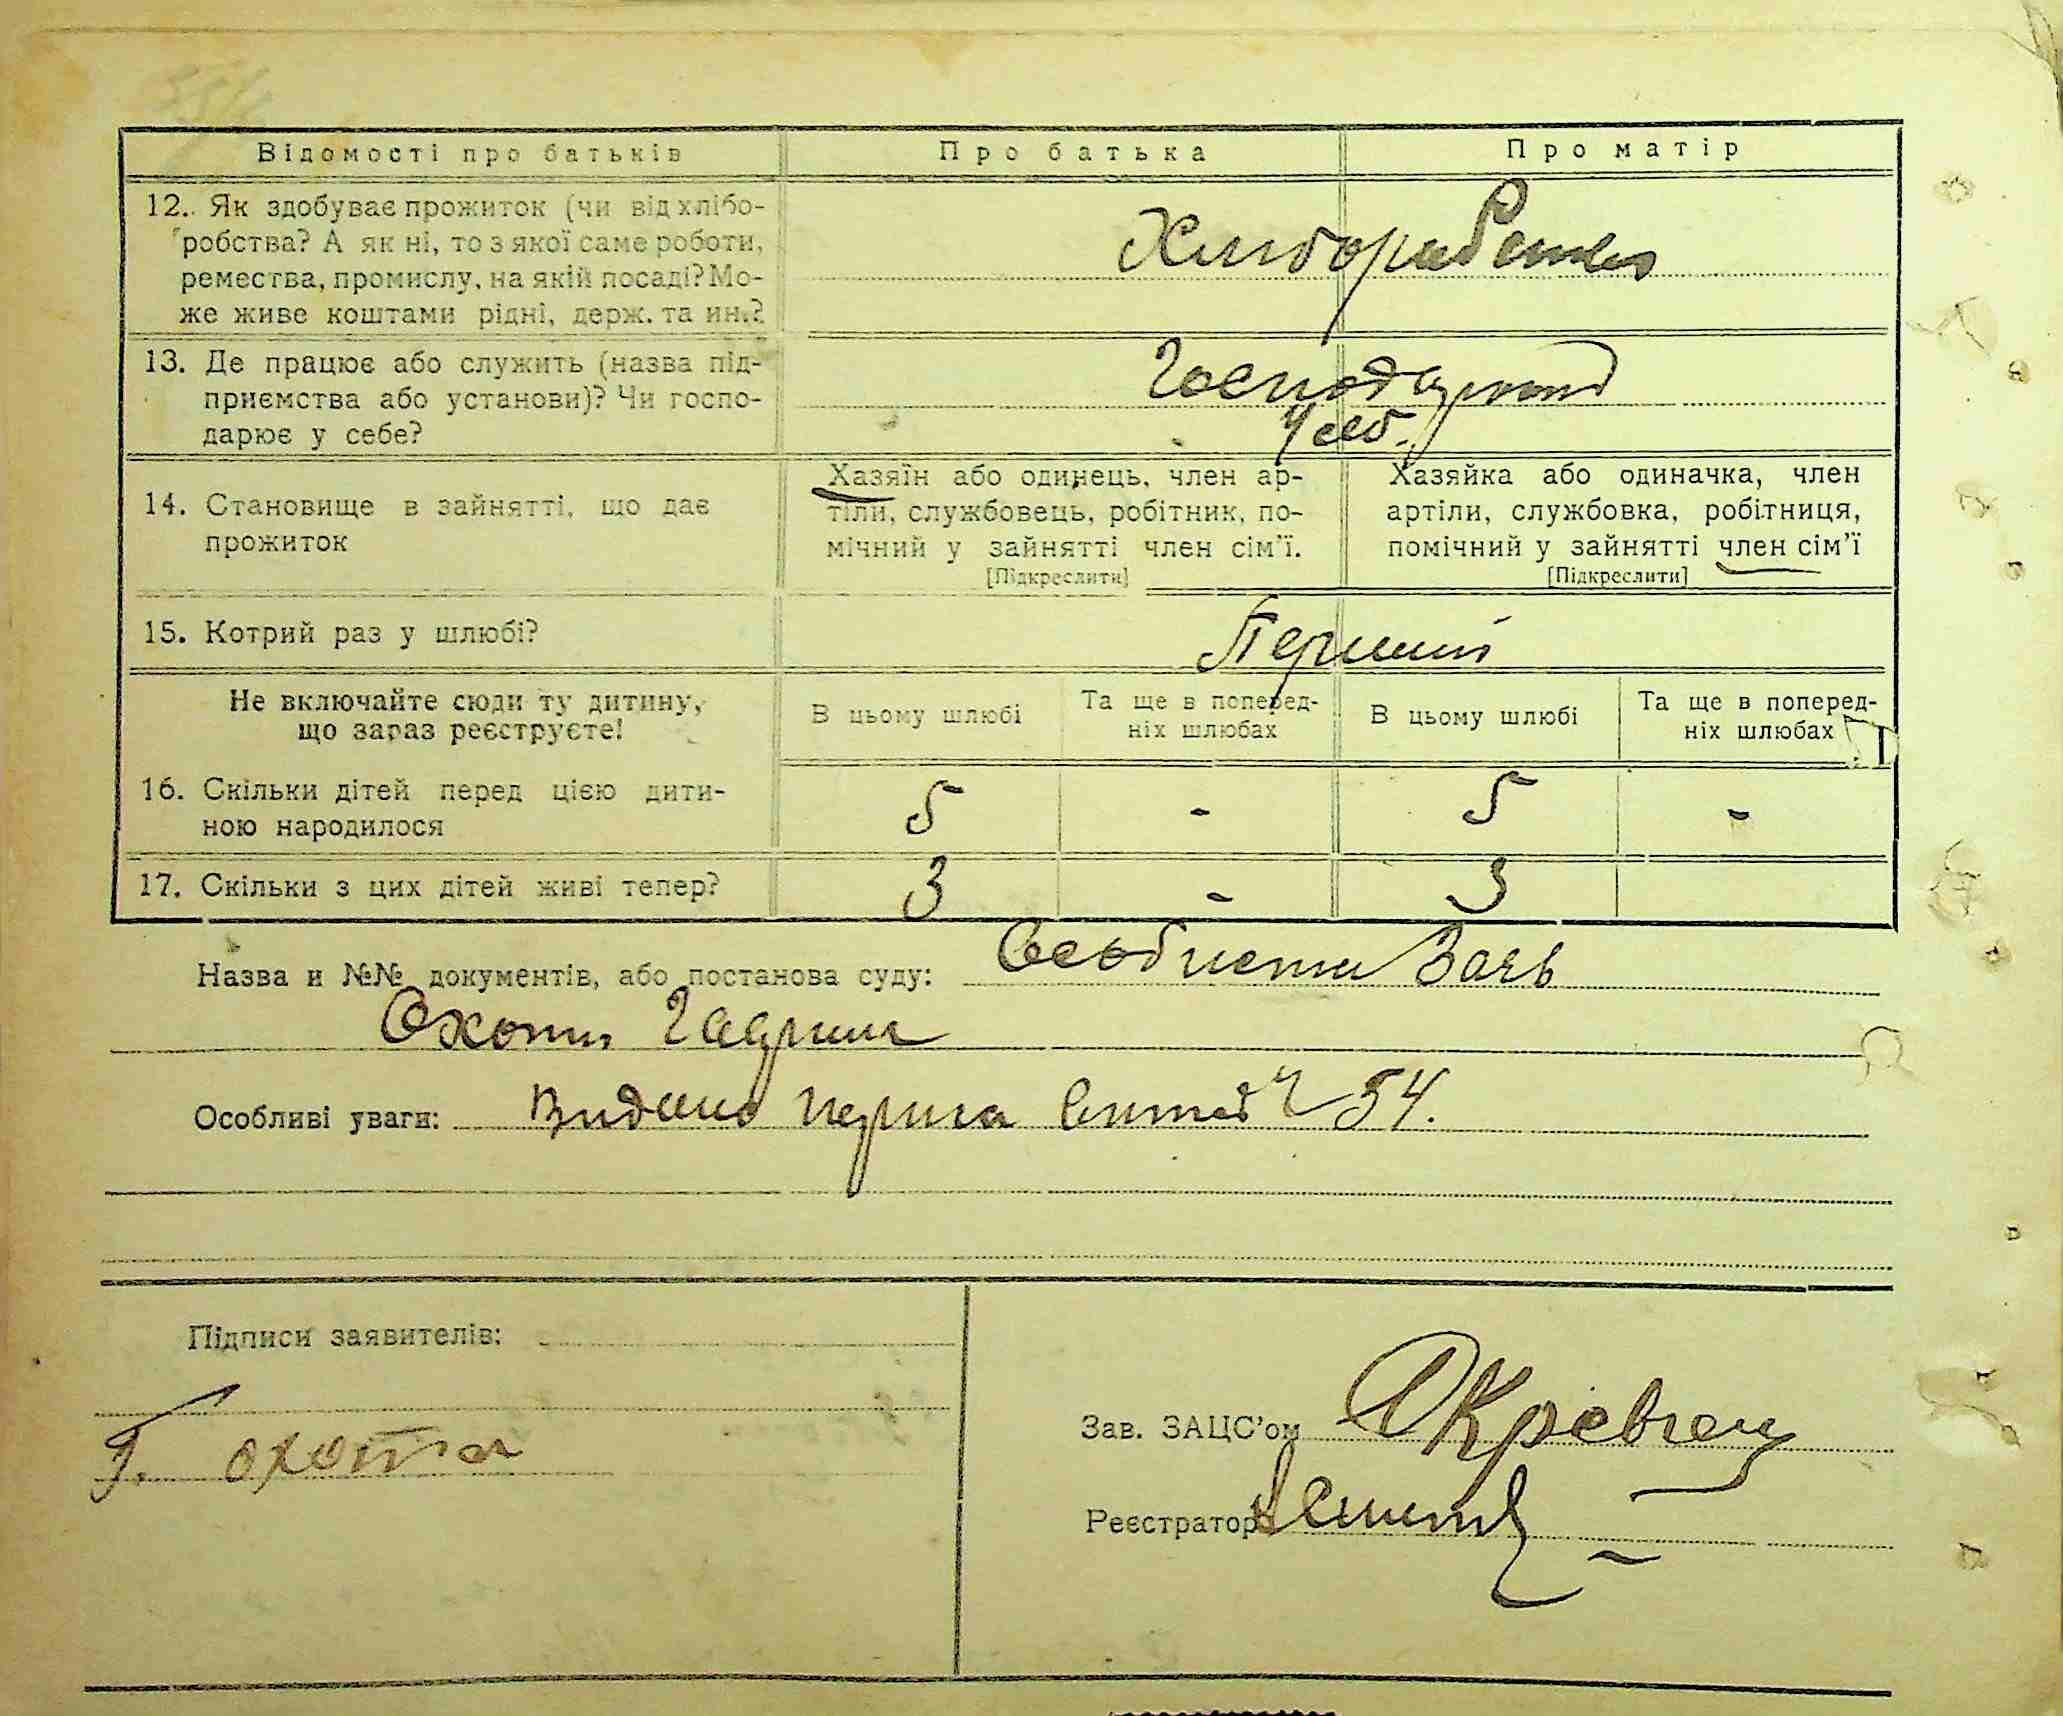 Відомості про батьків
Про батька
Про матір
12. Як здобуває прожиток (чи від хлібо-
робства? А як ні, то з якої саме роботи,
ремества, промислу, на якій посаді? Мо-
же живе коштами рідні, держ. та ин.?
Хліборобство
13. Де працює або служить (назва під-
приємства або установи)? Чи госпо-
дарює у себе?
Господарюют
У себ.
14. Становище в зайнятті, що дає
прожиток
Хазяїн або одинець, член ар-
тіли, службовець, робітник, по-
мічний у зайнятті член сім'ї.
[Підкреслити]
Хазяйка або одиначка, член
артіли, службовка, робітниця,
помічний у зайнятті член сім'ї
[Підкреслити]
15. Котрий раз у шлюбі?
Перший
Не включайте сюди ту дитину,
що зараз реєструєте!
В цьому шлюбі
Та ще в поперед-
ніх шлюбах
В цьому шлюбі
Та ще в поперед-
ніх шлюбах
16. Скільки дітей перед цією дити-
ною народилося
5 - 5 -
17. Скільки з цих дітей живі тепер?
3 - 3
Назва и №№ документів, або постанова суду: Особиста Заяв
Охоти
Особливі уваги: Видано перша 54.
Підписи заявителів:
Г. охота
Зав. ЗАЦС'ом
Реєстратор